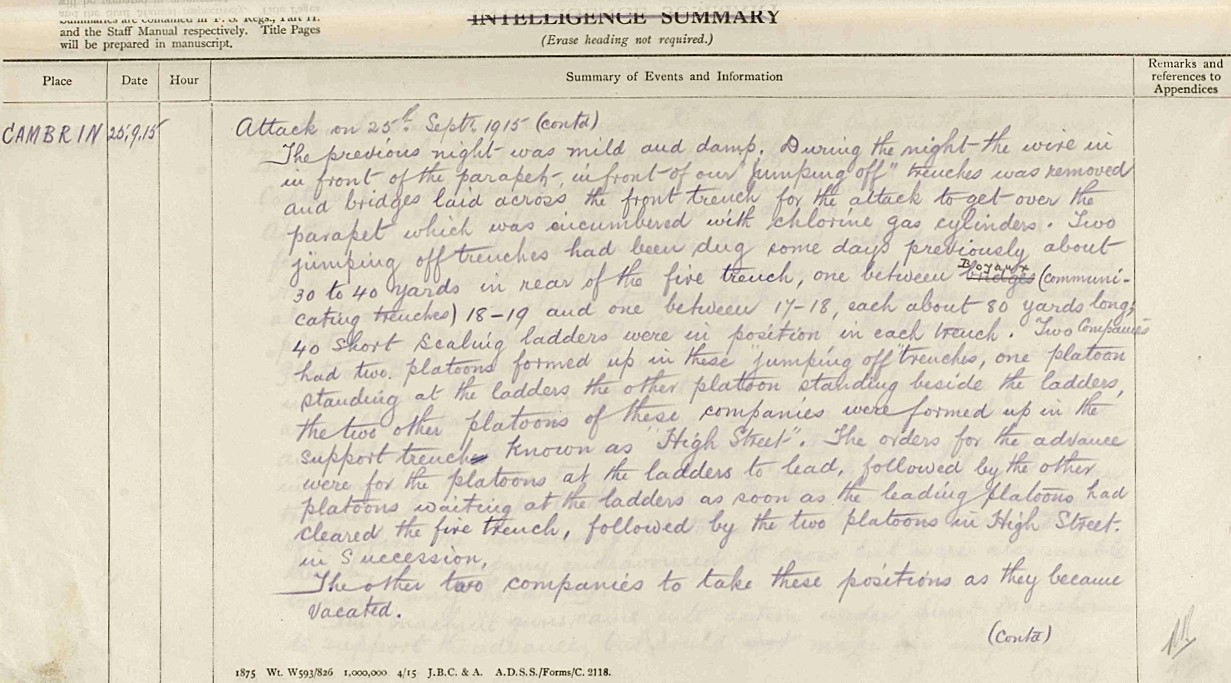 Summaries are contained in F. S. Regs., Part II.
and the Staff Manual respectively. Title Pages
will be prepared in manuscript.
INTELLIGENCE SUMMARY
(Erase heading not required.)
Place
Date
Hour
Summary of Events and Information
Remarks and
references to
Appendices
CAMBRIN 25,9,15
Attack on 25th Septr 1915 (contd)
The previous night was mild and damp. During the night the wire in
in front of the parapet, in front of our "jumping off" trenches was removed
and bridges laid across the front trench for the attack to get over the
parapet which was encumbered with chlorine gas cylinders. Two
jumping off trenches had been dug some days previously about
30 to 40 yards in rear of the fire trench, one between Boyaux bridges (communi-
cating trenches) 18-19 and one between 17-18, each about 80 yards long;
40 short scaling ladders were in position in each trench. Two Companies
had two platoons formed up in these "jumping off" trenches, one platoon
standing at the ladders the other platoon standing beside the ladders,
the two other platoons of these companies were formed up in the
support trench known as "High Street". The orders for the advance
were for the platoons at the ladders to lead, followed by the other
platoons waiting at the ladders as soon as the leading platoons had
cleared the fire trench, followed by the two platoons in High Street.
in Succession.
The other two companies to take these positions as they became
vacated.
(Contd)
1875 Wt. W593/826 1,000,000 4/15 J.B.C. & A. A.D.S.S./Forms/C. 2118.